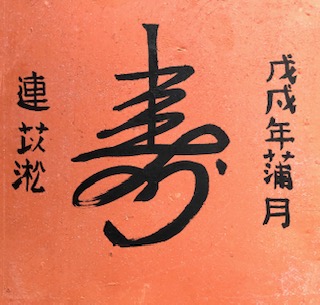 戊戌年蒲月
寿
連苡淞